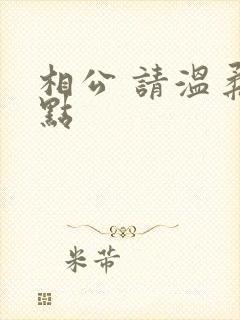 相公 請溫柔
點
米芾